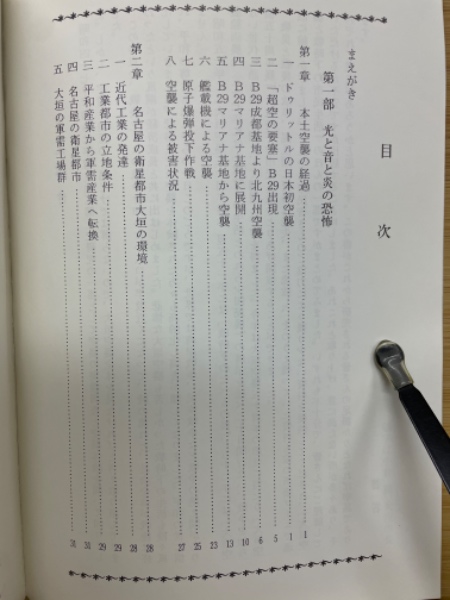 目次
まえがき
第一部 光と音と炎の恐怖
第一章 本土空襲の経過 1
一 ドゥリットルの日本初空襲 1
二 「超空の要塞」B29出現 5
三 B29成都基地より北九州空襲 6
四 B29マリアナ基地に展開 10
五 B29マリアナ基地から空襲 13
六 艦載機による空襲 23
七 原子爆弾投下作戦 25
八 空襲による被害状況 27
第二章 名古屋の衛星都市大垣の環境 28
一 近代工業の発達 28
二 工業都市の立地条件 29
三 平和産業から軍需産業へ転換 29
四 名古屋の衛星都市 31
五 大垣の軍需工場群 31